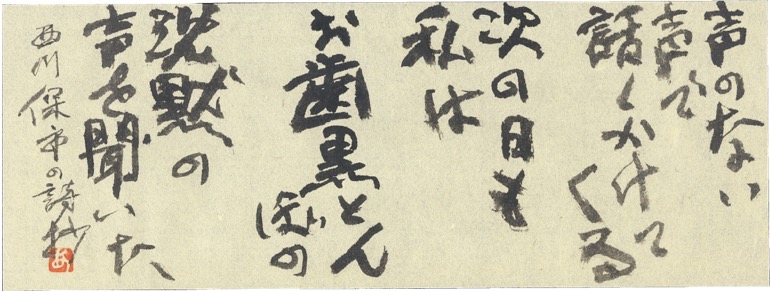 声のない
声で
話しかけて
くる
次の日も
私は
お歯黒とん
ぼの
沈黙の
声を聞いた
西川保市の詩抄